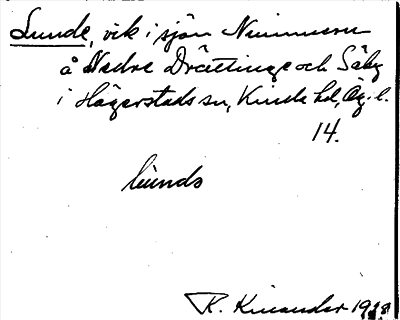 Lunde, vik i sjön Nimmern
å Nedre Drättinge och Säby
i Hägerstads sn, Kinda hd, Ög. l.
14.
lunds
R. Kinander 19